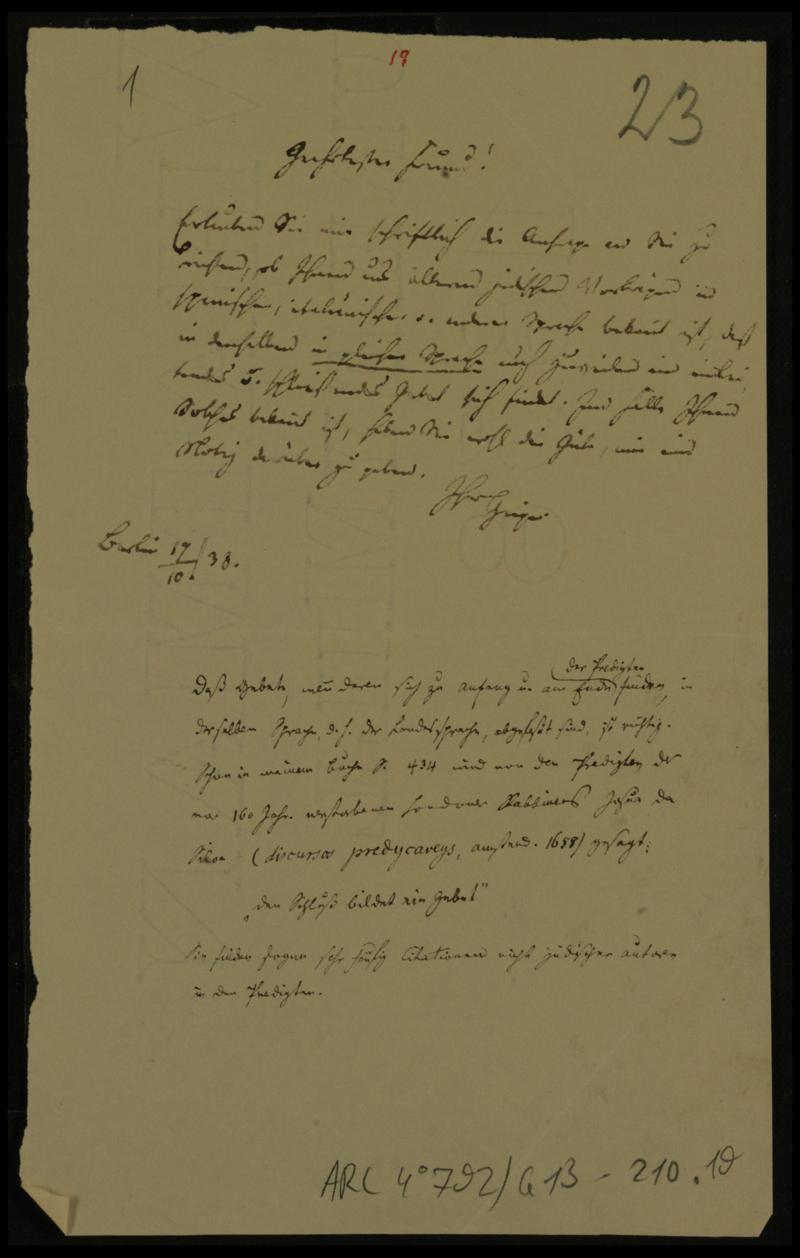 19
1
23
Geehrtester Freund!
Erlauben Sie mir schriftlich die Anfrage an Sie zu
richten, ob Ihnen aus älteren jüdischen Vorträgen in
spanischer, italienischer o. anderer Sprache bekannt ist, daß
in denselben in gleicher Sprache auch zuweilen ein einlei-
tendes u. schließendes Gebet sich findet. Im Falle Ihnen
Solches bekannt ist, haben Sie wohl die Güte, mir eine
Notiz darüber zu geben.
Ihr Geiger
Berlin 17/10. 38.
der Predigten
Daß Gebete, wenn deren sich zu Anfang u. am Ende finden, in
derselben Sprache, d. h. der Landessprache, abgefaßt sind, ist richtig.
Schon in meinem Buche S. 434 wird von den Predigten des
vor 160 Jahr. verstorbenen Londoner Rabbiners Josua da
Silva (discursos predycaveys, Amsterd. 1688) gesagt:
„den Schluß bildet ein Gebet"
Sie finden sogar sehr häufig Citationen nicht jüdischer Autoren
in den Predigten.
ARC 4° 792/G 13 - 210.19